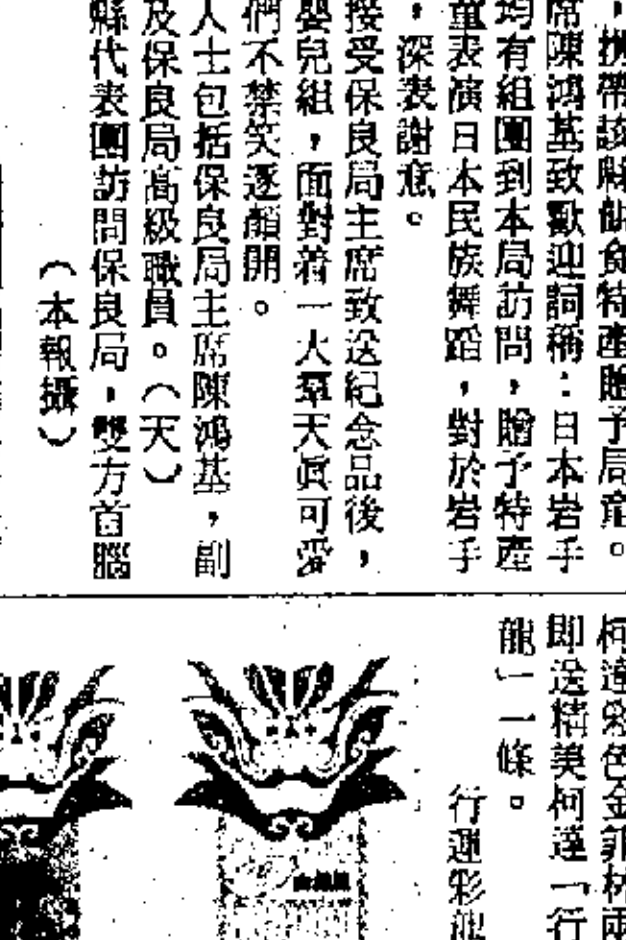 ，携帶該縣鮑魚特產贈予局童。
席陳鴻基致歡迎詞稱：日本岩手
均有組團到本局訪問，贈予特產
童表演日本民族舞蹈，對於岩手
，深表謝意。
接受保良局主席致送紀念品後，
嬰兒組，面對着一大羣天眞可愛
們不禁笑逐顏開。
人士包括保良局主席陳鴻基，副
及保良局高級職員。（天）
縣代表團訪問保良局，雙方首腦
（本報攝）
柯達彩色金菲林兩
即送精美柯達「行
龍」一條。
行運彩龍